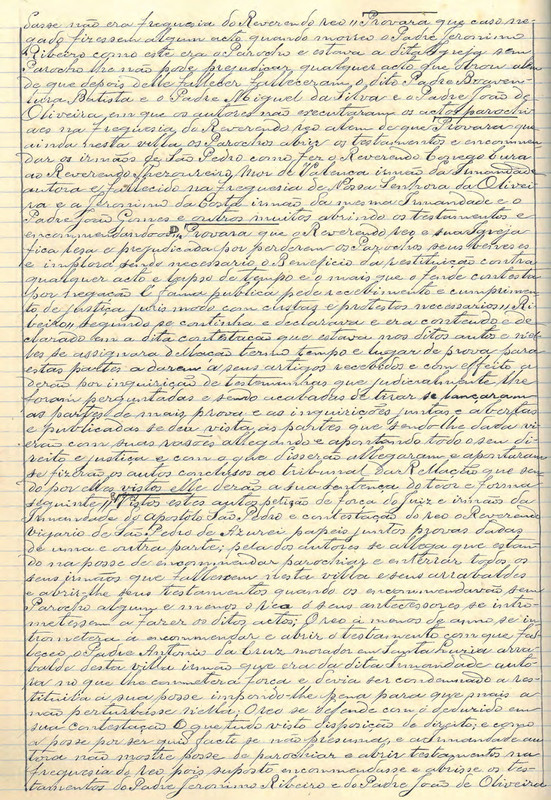 Susse não era freguesia do Reverendo reo "Provará que caso ne-
gado fizessem algum acto quando morreo o Padre Jeronimo
Ribeiro como este era o Parocho e estava a dita Igreja sem
Parocho lhe não pode prejudicar qualquer acto que obrou alem
de que depois delle fallecer falleceram, o dito Padre Boaven-
tura Batista e o Padre Miguel da Silva e o Padre João de
Oliveira, em que os autores não executaram os actos parochi-
aes na freguesia do Reverendo reo alem de que Provara que
ainda nesta villa os Parochos abrir os testamentos e encommen-
dar os irmãos de São Pedro como fez o Reverendo Conego Cura
ao Reverendo Thezoureiro Mor de Valença irmão da Irmandade
autora e fallecido na freguesia de Nossa Senhora da Olivei-
ra e a Jeronimo da Costa irmão da mesma Irmandade e o
Padre João Gomes e outros muitos abrindo os testamentos e
encommendando-os Provara que o Reverendo reo e sua Igreja
fica lesa e prejudicada por perderem os Parochos seus benesses
e implora sendo necessario o Beneficio da restituição contra
qualquer acto e lapso de tempo e o mais que o fende contesta
por negação l' fama publica pede recebimento e cumprimen-
to de justiça juris modo com clustas e protestos necessarios, Ri-
beiro, segundo se continha e declarava e era conteudo e de-
clarado em a dita contestação que estava nos ditos autos e nel-
les se assignara dellação termo tempo e lugar de prova para
estas partes a darem a seus artigos recebidos e com effeito a
derão por inquirição de testemunhas que judicialmente lhe
foram perguntadas e sendo acabadas de tirar se lançaram
as partes de mais prova e as inquirições juntas e abertas
e publicadas se deu vista ás partes que sendo-lhe dada vi-
erão com suas rasões allegando e apontando todo o seu di-
reito e justiça e com o que disserão allegaram e apontaram
se fizerão os autos conclusos ao tribunal Dar Rellação que sen-
do por elles vistos nelle derão a sua sentença do teor e forma
seguinte "Vistos estes autos petição de força do Juiz e irmãos da
Irmandade do apostolo São Pedro e contestação do reo o Reverendo
vigario de São Pedro de Azurei papeis juntos provas dadas
de uma e outra parte; pela dos autores se allega que estan-
do na posse de encommendar parochiar e enterrar todos os
seus irmãos que fallessem nesta villa e seus arrabaldes
e abrir-lhe seus testamentos quando os encommendavão sem
Parocho algum e menos o reo e seus antecessores se intro-
metessem a fazer os ditos actos; O reo á menos de anno se in-
trometera á encommendar e abrir o testamento com que fal-
leceo o Padre Antonio da Cruz morador em Santa Luzia arra-
balde desta villa irmão que era da dita Irmandade auto-
ra no que lhe cometera força e devia ser condemnado a res-
tituila á sua posse impondo-lhe pena para que mais a
não perturbasse nella; O reo se defende com o deduzido em
sua contestação O que tudo visto disposição de direito; e como
a posse por ser quid facti se não presuma, e a Irmandade au-
tora não mostre posse de parochiar e abrir testamentos na
freguesia do reo pois suposto encommendasse e abrisse os tes-
tamentos do Padre Jeronimo Ribeiro e do Padre João de Oliveira